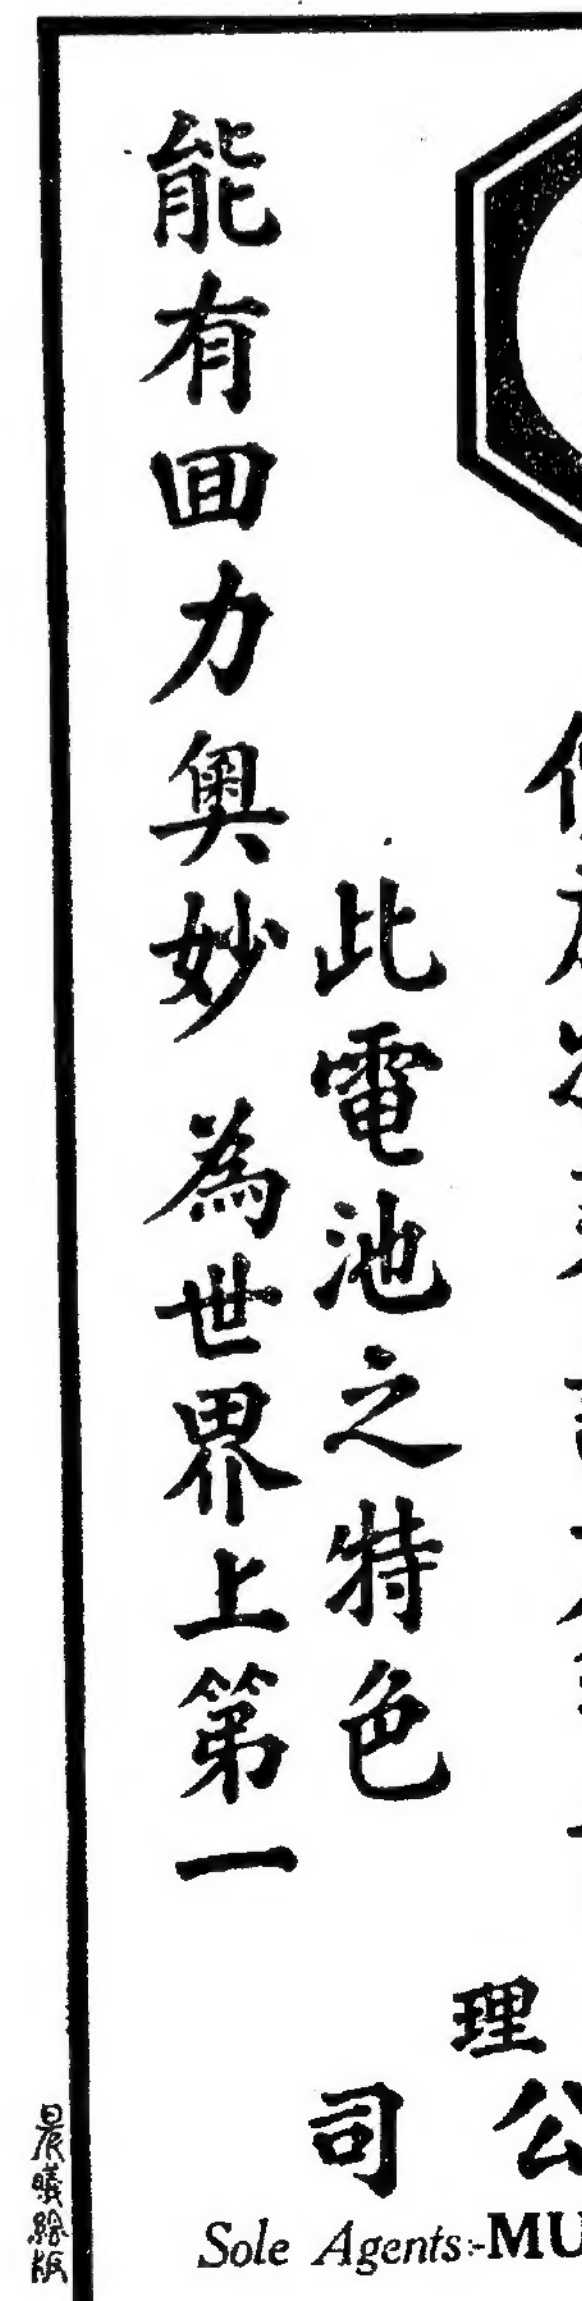 此電池之特色
能有囬力奧妙 為世界上第一
理
公
司
Sole Agents:-MU
晨曦繪版